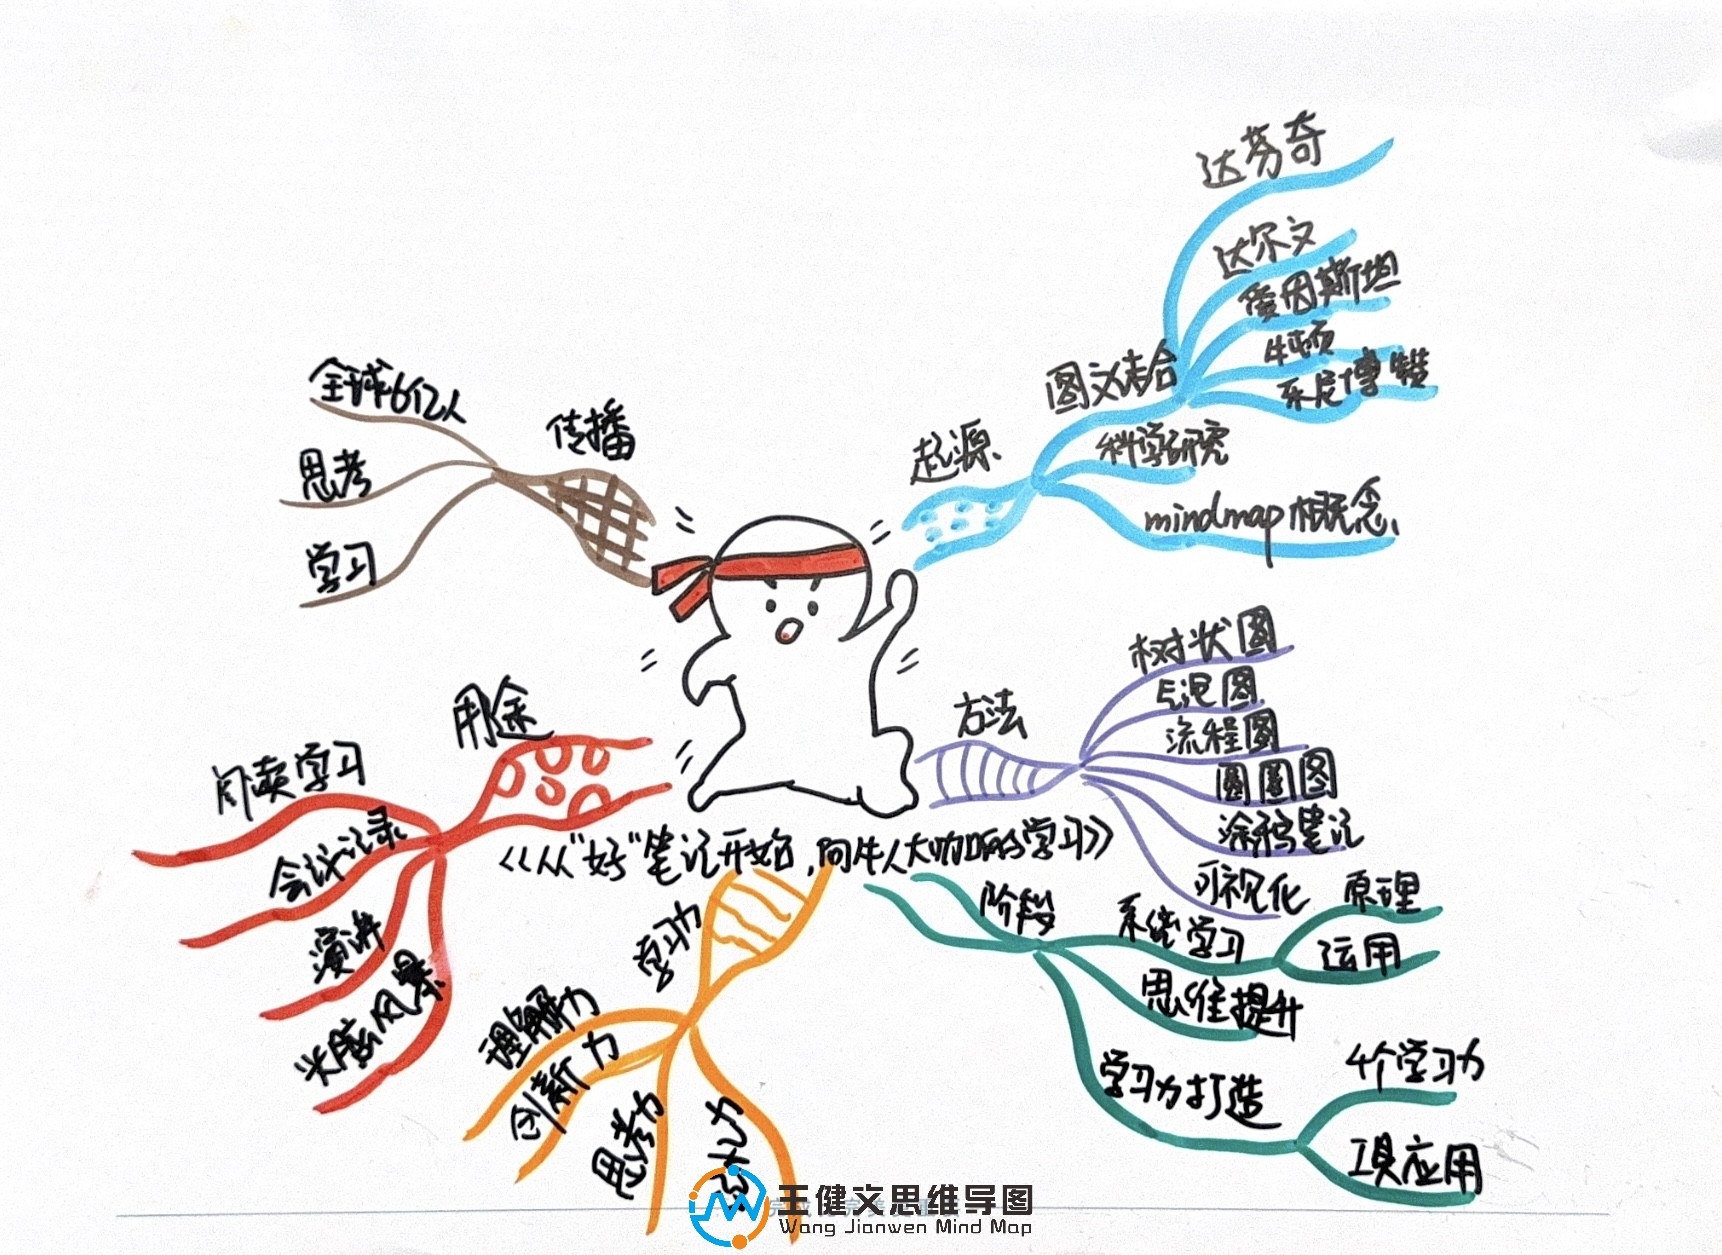 达芬奇
达尔文
爱因斯坦
牛顿
图文结合
起源
科学研究
mindmap概念
全球6亿人
传播
思考
学习
树状图
气泡图
方法
流程图
圆圈图
涂鸦笔记
可视化
用途
阅读学习
会议记录
演讲
头脑风暴
《从“好”笔记开始,向牛人大咖
学习》
学习力
理解力
创新力
思考力
阶段
系统学习
原理
运用
思维提升
学习力打造
4个学习力
工具应用
王健文思维导图
Wang Jianwen Mind Map